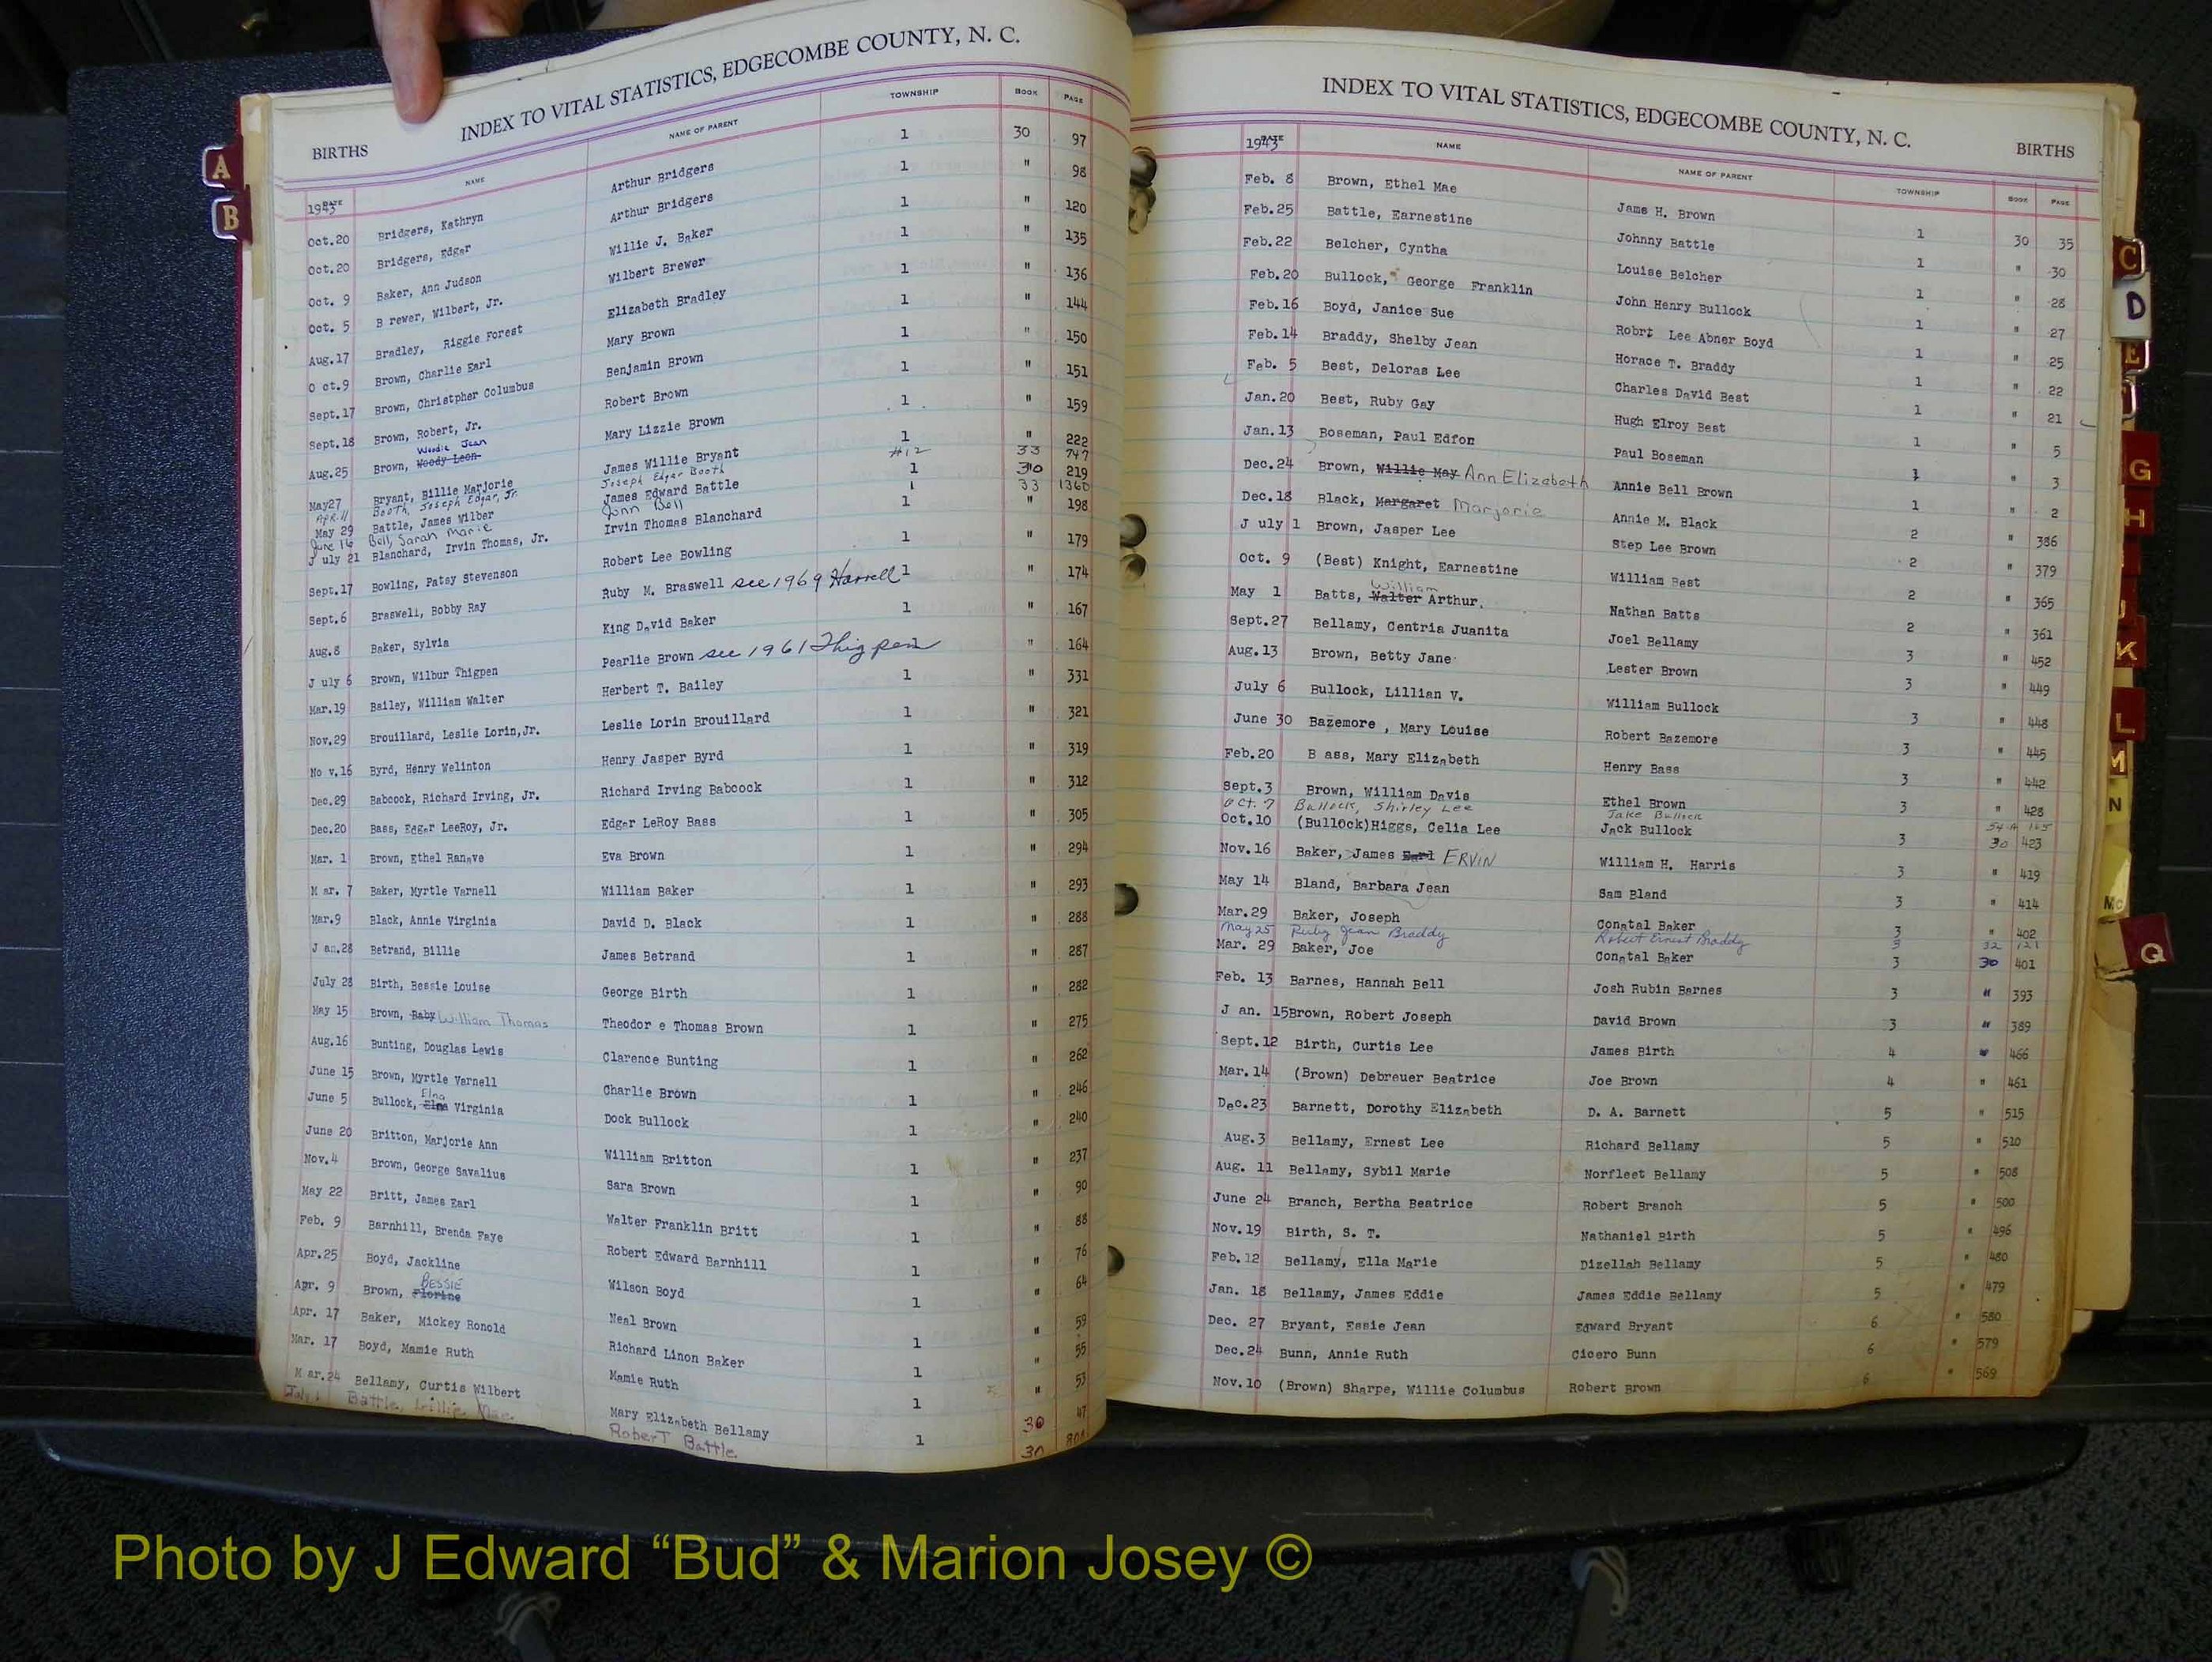 INDEX TO VITAL STATISTICS, EDGECOMBE COUNTY, N. C.
BIRTHS
DATE NAME NAME OF PARENT TOWNSHIP BOOK PAGE
1943
Oct.20 Bridgers, Kathryn Arthur Bridgers 1 30 97
Oct.20 Bridgers, Edger Arthur Bridgers 1 " 98
Oct. 9 Baker, Ann Judson Willie J. Baker 1 " 120
Oct. 5 B rewer, Wilbert, Jr. Wilbert Brewer 1 " 135
Aug.17 Bradley, Riggie Forest Elizabeth Bradley 1 " 136
O ct.9 Brown, Charlie Earl Mary Brown 1 " 144
Sept.17 Brown, Christpher Columbus Benjamin Brown 1 " 150
Sept.18 Brown, Robert, Jr. Robert Brown 1 " 151
Woodie Jean
Aug.25 Brown, Woody Leon Mary Lizzie Brown 1 " 159
May27 Bryant, Billie Marjorie James Willie Bryant 1 " 222
Apr.11 Booth, Joseph Edgar, Jr. Joseph Edgar Booth #12 33 747
May 29 Battle, James Wilber James Edward Battle 1 30 219
June 16 Bell, Sarah Marie John Bell 1 33 1360
J uly 21 Blanchard, Irvin Thomas, Jr. Irvin Thomas Blanchard 1 " 198
Sept.17 Bowling, Patsy Stevenson Robert Lee Bowling 1 " 179
Sept.6 Braswell, Bobby Ray Ruby M. Braswell see 1969 Harrell 1 " 174
Aug.8 Baker, Sylvia King David Baker 1 " 167
J uly 6 Brown, Wilbur Thigpen Pearlie Brown see 1961 Thigpen 1 " 164
Mar.19 Bailey, William Walter Herbert T. Bailey 1 " 331
Nov.29 Brouillard, Leslie Lorin,Jr. Leslie Lorin Brouillard 1 " 321
No v.16 Byrd, Henry Welinton Henry Jasper Byrd 1 " 319
Dec.29 Babcock, Richard Irving, Jr. Richard Irving Babcock 1 " 312
Dec.20 Bass, Edgar LeeRoy, Jr. Edgar LeRoy Bass 1 " 305
Mar. 1 Brown, Ethel Ranave Eva Brown 1 " 294
M ar. 7 Baker, Myrtle Varnell William Baker 1 " 293
Mar.9 Black, Annie Virginia David D. Black 1 " 288
J an.28 Betrand, Billie James Betrand 1 " 287
July 28 Birth, Bessie Louise George Birth 1 " 282
May 15 Brown, Baby William Thomas Theodor e Thomas Brown 1 " 275
Aug.16 Bunting, Douglas Lewis Clarence Bunting 1 " 262
June 15 Brown, Myrtle Varnell Charlie Brown 1 " 246
June 5 Bullock, Virginia Dock Bullock 1 " 240
June 20 Britton, Marjorie Ann William Britton 1 " 237
Nov.4 Brown, George Savalius Sara Brown 1 " 90
May 22 Britt, James Earl Walter Franklin Britt 1 " 88
Feb. 9 Barnhill, Brenda Faye Robert Edward Barnhill 1 " 76
Apr.25 Boyd, Jackline Wilson Boyd 1 " 64
BESSIE
Apr. 9 Brown, Florine Neal Brown " 59
Apr. 17 Baker, Mickey Ronold Richard Linon Baker 1 " 55
Mar. 17 Boyd, Mamie Ruth Mamie Ruth 1 " 53
M ar.24 Bellamy, Curtis Wilbert Mary Elizabeth Bellamy 1 30 47
Battle, Robert Battle 1 30
INDEX TO VITAL STATISTICS, EDGECOMBE COUNTY, N. C.
BIRTHS
DATE NAME NAME OF PARENT TOWNSHIP BOOK PAGE
1943
Feb. 8 Brown, Ethel Mae Jams H. Brown 1 30 35
Feb.25 Battle, Earnestine Johnny Battle 1 " 30
Feb.22 Belcher, Cyntha Louise Belcher 1 " 28
Feb.20 Bullock, George Franklin John Henry Bullock 1 " 27
Feb.16 Boyd, Janice Sue Robrt Lee Abner Boyd 1 " 25
Feb.14 Braddy, Shelby Jean Horace T. Braddy 1 " 22
Feb. 5 Best, Deloras Lee Charles David Best 1 " 21
Jan.20 Best, Ruby Gay Hugh Elroy Best 1 " 5
Jan.13 Boseman, Paul Edfon Paul Boseman 1 " 3
Dec.24 Brown, Willie May Ann Elizabeth Annie Bell Brown 1 " 2
Dec.18 Black, Margaret Marjorie Annie M. Black 2 " 386
J uly 1 Brown, Jasper Lee Step Lee Brown 2 " 379
Oct. 9 (Best) Knight, Earnestine William Best 2 " 365
William
May 1 Batts, Walter Arthur. Nathan Batts 2 " 361
Sept.27 Bellamy, Centria Juanita Joel Bellamy 3 " 452
Aug.13 Brown, Betty Jane Lester Brown 3 " 449
July 6 Bullock, Lillian V. William Bullock 3 " 448
June 30 Bazemore , Mary Louise Robert Bazemore 3 " 445
Feb.20 B ass, Mary Elizabeth Henry Bass 3 " 442
Sept.3 Brown, William Davis Ethel Brown 3 " 428
Oct. 7 Bullock, Shirley Lee Jake Bullock 54-A 165
Oct.10 (Bullock)Higgs, Celia Lee Jack Bullock 3 30 423
Nov.16 Baker, James Earl ERVIN William H. Harris 3 " 419
May 14 Bland, Barbara Jean Sam Bland 3 " 414
Mar.29 Baker, Joseph Conatal Baker 3 " 402
May 25 Ruby Jean Braddy Robert Ernest Braddy 3 32 121
Mar. 29 Baker, Joe Conatal Baker 3 30 401
Feb. 13 Barnes, Hannah Bell Josh Rubin Barnes 3 " 393
J an. 15Brown, Robert Joseph David Brown 3 " 389
Sept.12 Birth, Curtis Lee James Birth 4 " 466
Mar.14 (Brown) Debreuer Beatrice Joe Brown 4 " 461
Dec.23 Barnett, Dorothy Elizabeth D. A. Barnett 5 " 515
Aug.3 Bellamy, Ernest Lee Richard Bellamy 5 " 510
Aug. 11 Bellamy, Sybil Marie Norfleet Bellamy 5 " 508
June 24 Branch, Bertha Beatrice Robert Branch 5 " 500
Nov.19 Birth, S. T. Nathaniel Birth 5 " 496
Feb.12 Bellamy, Ella Marie Dizellah Bellamy 5 " 480
Jan. 18 Bellamy, James Eddie James Eddie Bellamy 5 " 479
Dec. 27 Bryant, Essie Jean Edward Bryant 6 " 580
Dec.24 Bunn, Annie Ruth Cicero Bunn 6 " 579
Nov.10 (Brown) Sharpe, Willie Columbus Robert Brown 6 " 569
A
B
C
D
E
G
H
J
K
L
M
N
Mc
Q
Photo by J Edward “Bud” & Marion Josey ©